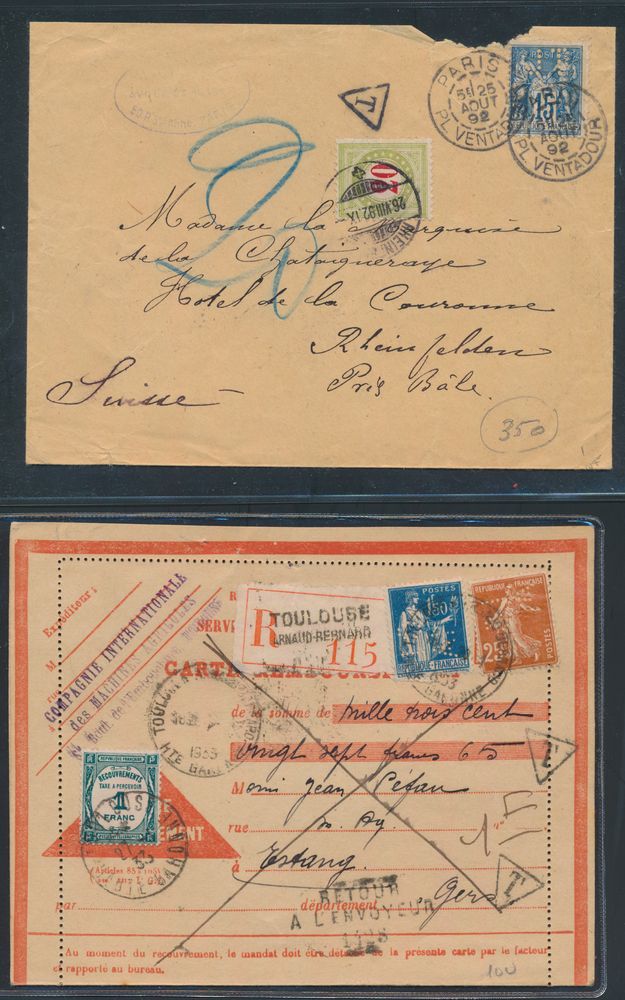 PARIS
25
AOUT
92
PL. VENTADOUR
POSTE
15
AOUT
92
PL. VENTADOUR
T
20
20
26.VIII.92.IX
RHEIN
Madame la Marquise
de la Chataigneraye
Hotel de la Couronne
Rheinfelden
Près Bâle.
Suisse
350
Expéditeur :
M
COMPAGNIE INTERNATIONALE
des MACHINES AGRICOLES
Boult. de l'Embouchure
SERV
R
TOULOUSE
ARNAUD-BERNARD
115
POSTES
1F50
REPUBLIQUE FRANÇAISE
REPUBLIQUE FRANÇAISE
1933
GARONNE
CARTE REMBOURSEMENT
TOULOUSE
1933
HTE GARONNE
de la somme de mille trois cent
vingt sept francs 65
REPUBLIQUE FRANÇAISE
RECOUVREMENTS
TAXE A PERCEVOIR
1
FRANC
M
Jean
rue
à Estang.
Gers
T
1F
T
par
département
RETOUR
A L'ENVOYEUR
Au moment du recouvrement, le mandat doit être détaché de la présente carte par le facteur
et rapporté au bureau.
100